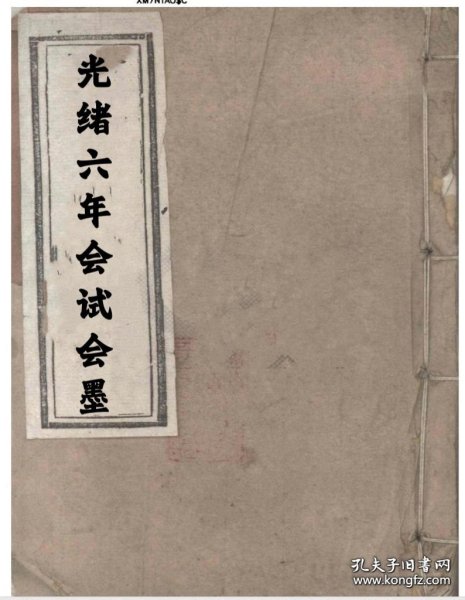 光绪六年会试会墨
孔夫子旧书网
www.kongfz.com